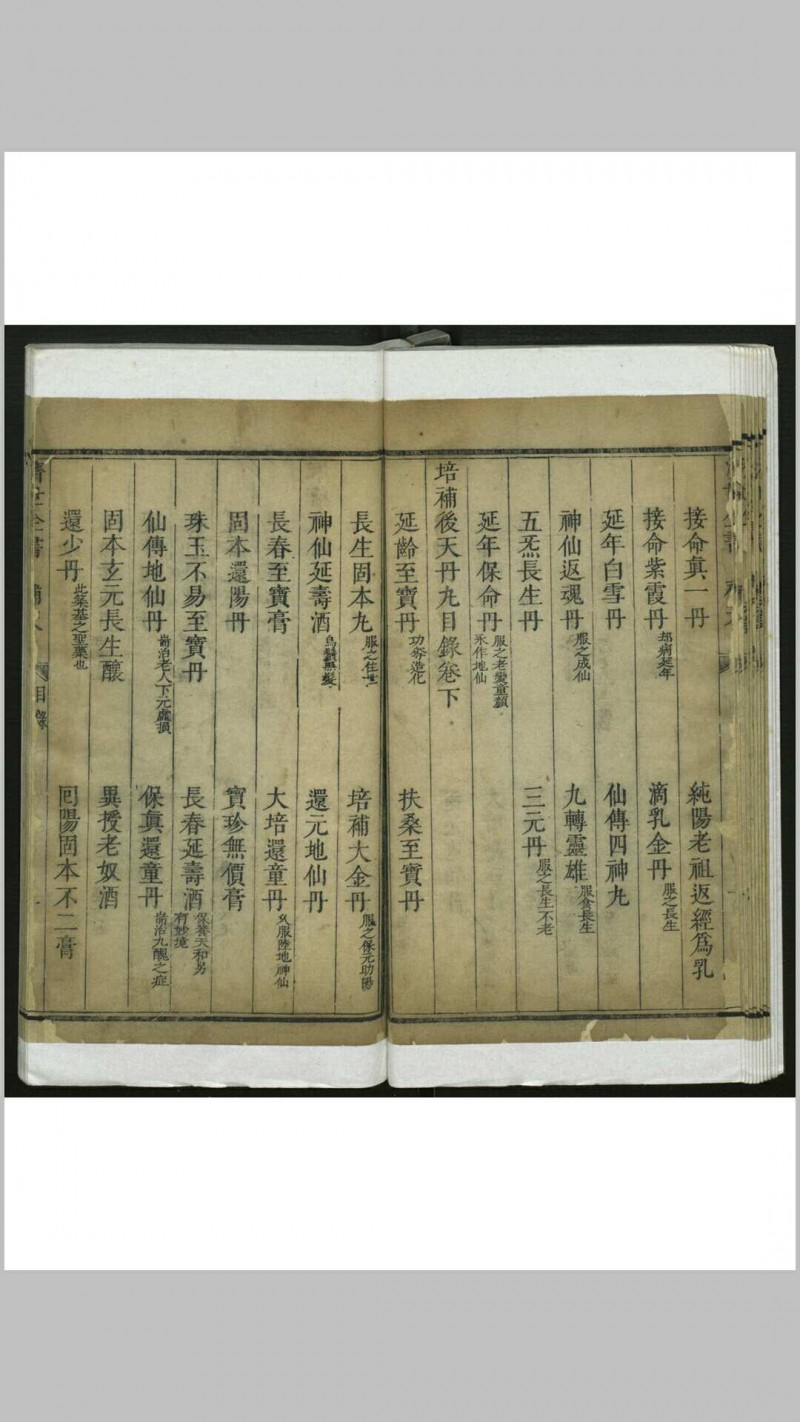 接命真一丹　純陽老祖返經為乳
接命紫霞丹却病延年　滴乳金丹服之長生
延年白雪丹　仙傳四神丸
神仙返魂丹服之成仙　九轉靈雄服食長生
五炁長生丹　三元丹服之長生不老
延年保命丹服之老變童顏永作地仙
培補後天丹丸目錄卷下
延齡至寶丹功奪造化　扶桑至寶丹
長生固本丸服之住世　培補大金丹服之保元助陽
神仙延壽酒烏鬚黑髮　還元地仙丹
長春至寶膏　大培還童丹久服陸地神仙
固本還陽丹　寶珍無價膏
珠玉不易至寶丹　長春延壽酒保養天和另有妙境
仙傳地仙丹耑治老人下元虛損　保真還童丹耑治九醜之症
固本玄元長生釀　異授老奴酒
還少丹此築基之聖藥也　回陽固本不二膏
濟世全書　目錄